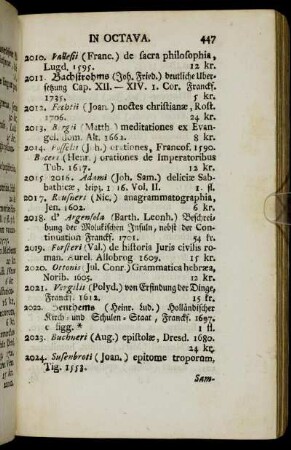 IN OCTAVA. 447
2010. Vallesii (Franc.) de sacra philosophia,
Lugd. 1595. 12 kr.
2011. Bachstrohms (Joh. Fried.) deutliche Uber-
setzung Cap. XII. — XIV. 1. Cor. Franckf.
1735. 5 kr.
2012. Fechtii (Joan.) noctes christianæ, Rost.
1706. 24 kr.
2013. Bergii (Matth.) meditationes ex Evan-
gel. dom. Alt. 1662. 8 kr.
2014. Posselii (Joh.) orationes, Francof. 1590.
Boceri (Henr.) orationes de Imperatoribus
Tub. 1617. 12 kr.
2015. 2016. Adami (Joh. Sam.) deliciæ Sab-
bathicæ, leipz. 1716. Vol. II. 1 fl.
2017. Reusneri (Nic.) anagrammatographia,
Jen. 1602. 6 kr.
2018. d' Argensola (Barth. Leonh.) Beschrei-
bung der Molukischen Insuln, nebst der Con-
tinuation Franckf. 1701. 54 kr.
2019. Forsteri (Val.) de historia Juris civilis ro-
man. Aurel. Allobrog 1609. 15 kr.
2020. Ottonis (Jul. Conr.) Grammatica hebræa,
Norib. 1605. 12 kr.
2021. Vergilii (Polyd.) von Erfindung der Dinge,
Franckf. 1612. 15 kr.
2022. Benthems (Heinr. Lud.) Holländischer
Kirch- und Schulen-Staat, Franckf. 1697.
c. figg. * 1 fl.
2023. Buchneri (Aug.) epistolæ, Dresd. 1680.
24 kr.
2024. Susenbroti (Joan.) epitome troporum,
Tig. 1553.
Sam-